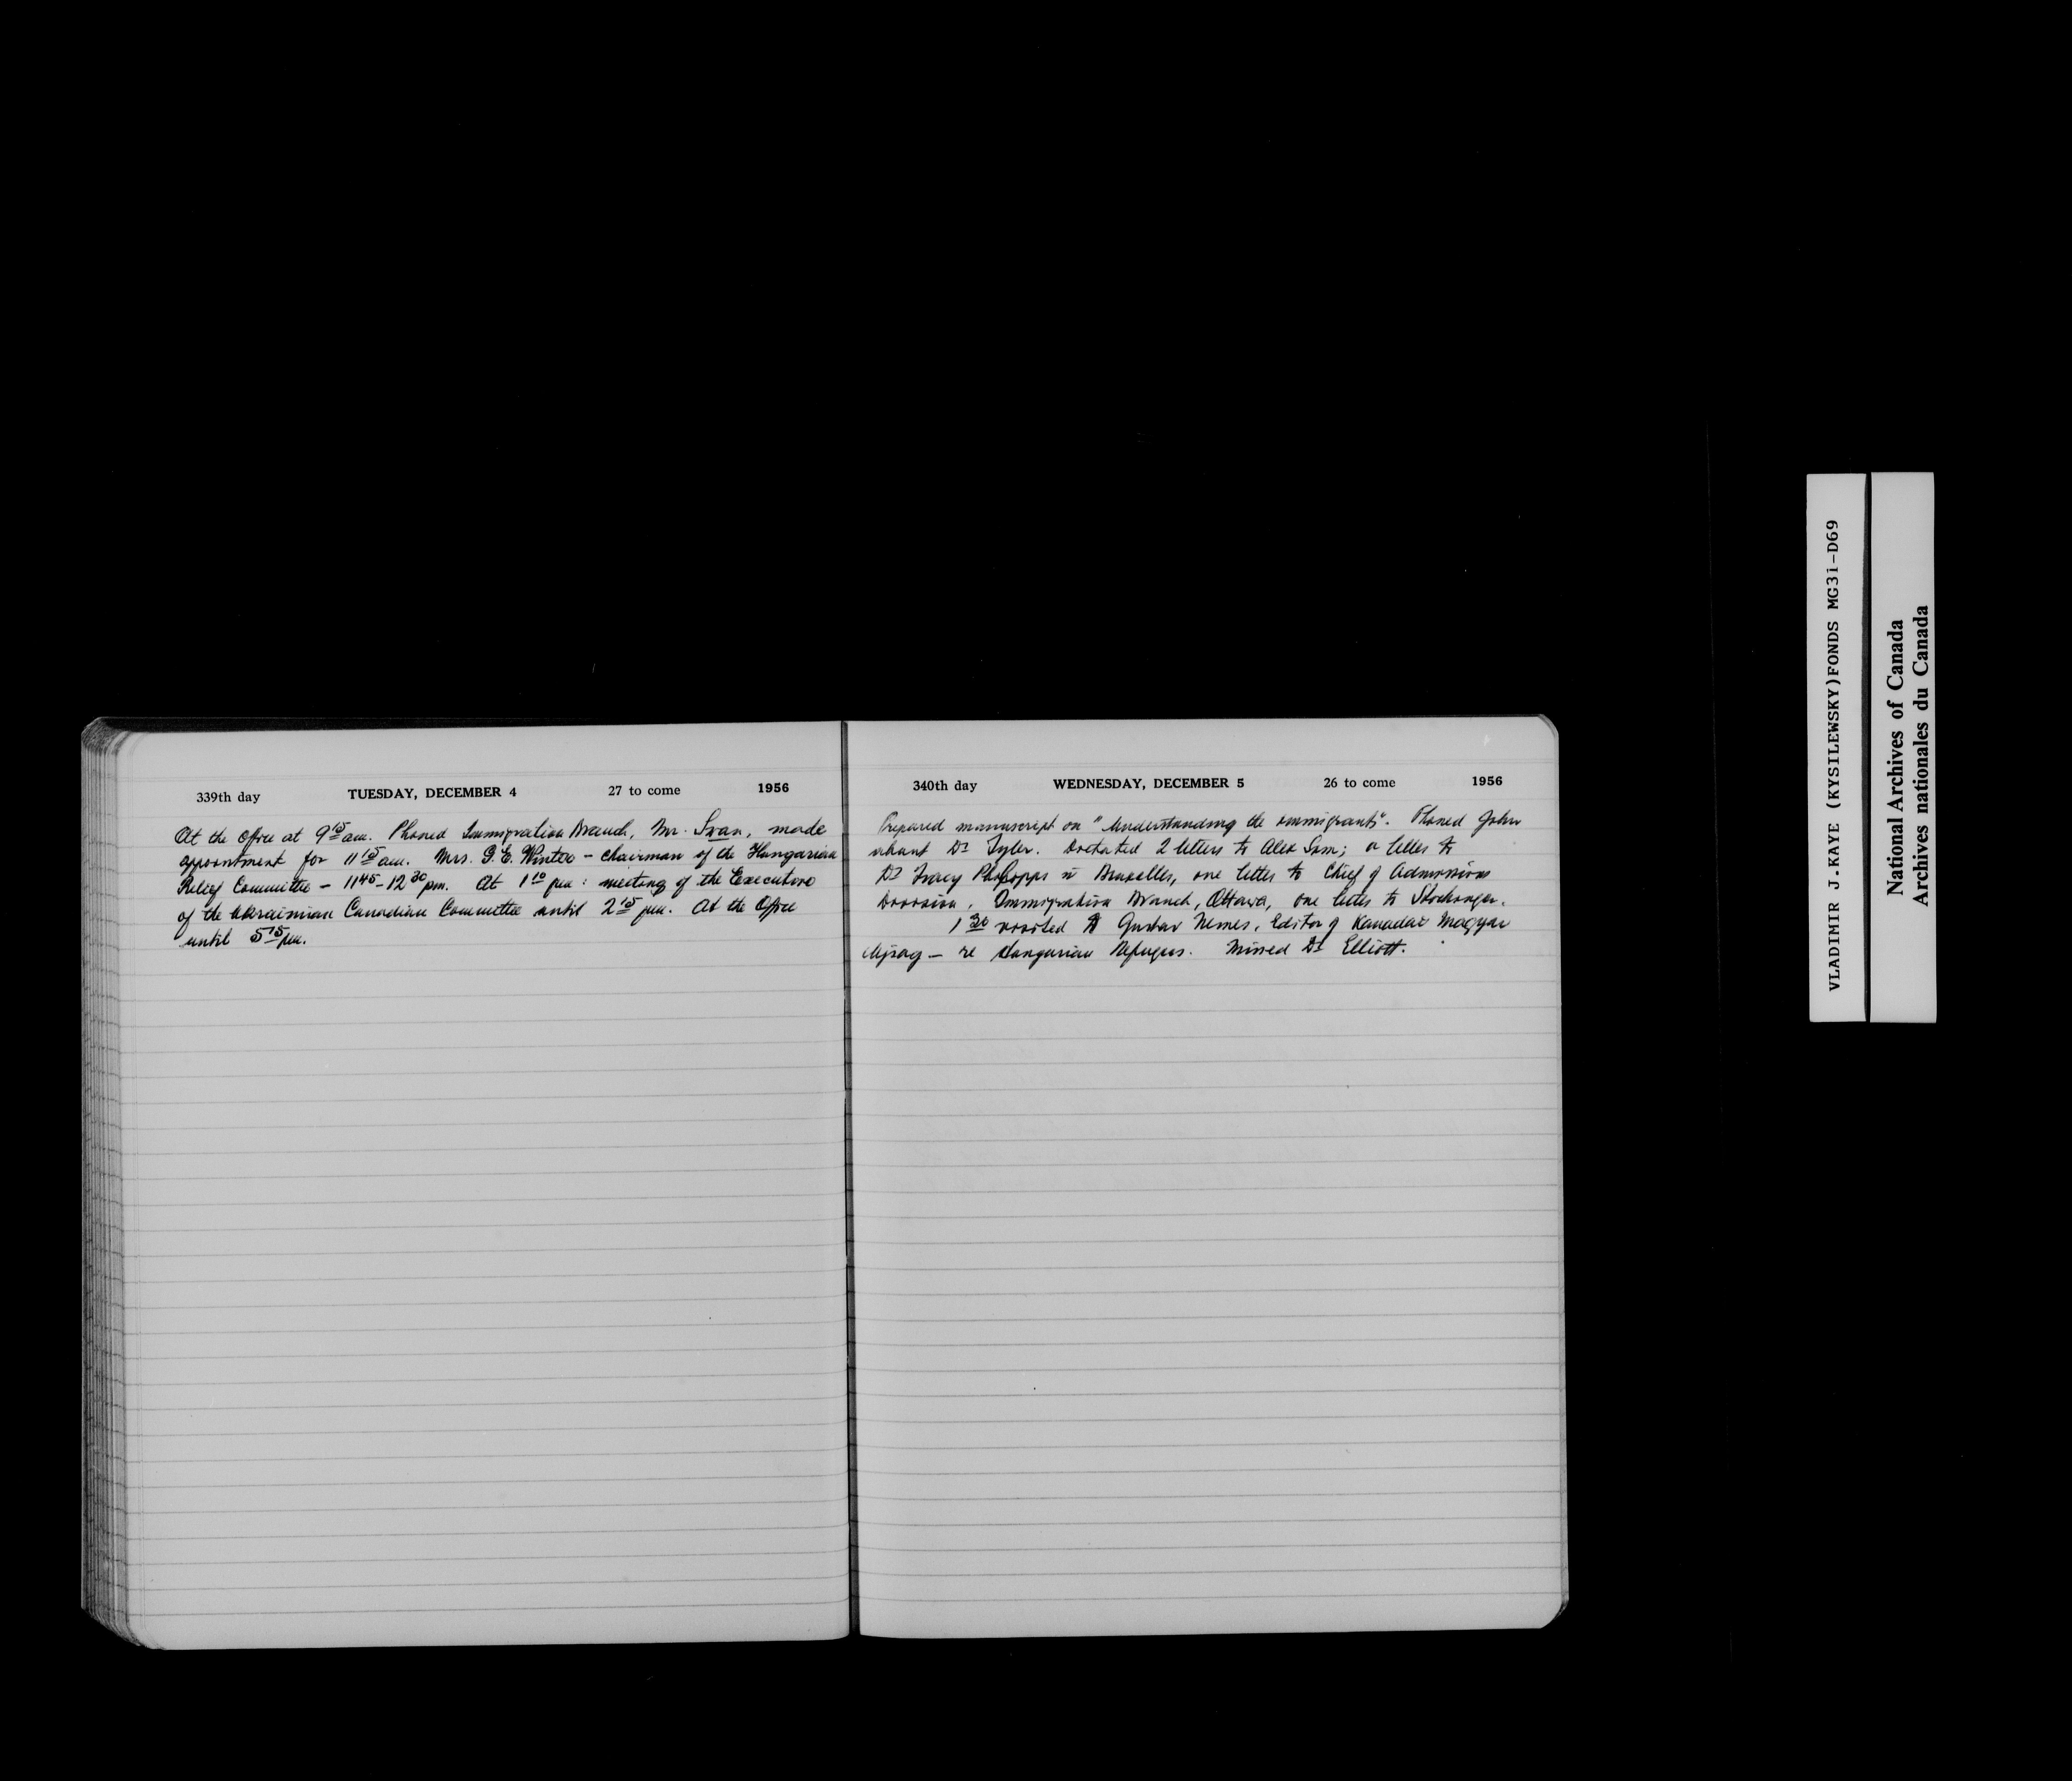 339th day TUESDAY, DECEMBER 4 27 to come 1956
At the Office at 9 15 am. Phoned Immigration Branch, Mr. Swan, made
appointment for 11 15 am. Mrs. G.E. Winter – chairman of the Hungarian
Relief Committee – 11 45 - 12 30 pm. At 1 10 pm: meeting of the Executive
of the Ukrainian Canadian Committee until 2 15 pm. At the Office
until 5 15 pm.
340th day WEDNESDAY, DECEMBER 5 26 to come 1956
Prepared manuscript on "Understanding the immigrants". Phoned John
about Dr Tyler. Dictated 2 letters to Alex Sim; a letter to
Dr Tracy Philipps in Bruxelles, one letter to Chief of Admissions
Division, Immigration Branch, Ottawa, one letter to
1 30 visited Gustav Nemes, Editor of Kanadai Magyar
Ujsag – re Hungarian Refugees. Missed Dr Elliott.
VLADIMIR J.KAYE (KYSILEWSKY)FONDS MG31-D69
National Archives of Canada
Archives nationales du Canada